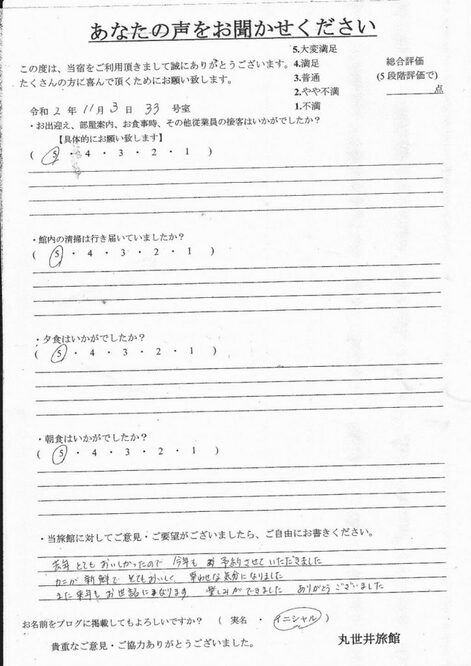 あなたの声をお聞かせください
この度は、当宿をご利用頂きまして誠にありがとうございます。
たくさんの方に喜んで頂くためにお願い致します。
5.大変満足
4.満足
3.普通
2.やや不満
1.不満
総合評価
(5段階評価で)
点
令和 2 年 11 月 3 日 33 号室
・お出迎え、部屋案内、お食事時、その他従業員の接客はいかがでしたか？
【具体的にお願い致します】
( 5 ・ 4 ・ 3 ・ 2 ・ 1 )
・館内の清掃は行き届いていましたか？
( 5 ・ 4 ・ 3 ・ 2 ・ 1 )
・夕食はいかがでしたか？
( 5 ・ 4 ・ 3 ・ 2 ・ 1 )
・朝食はいかがでしたか？
( 5 ・ 4 ・ 3 ・ 2 ・ 1 )
・当旅館に対してご意見・ご要望がございましたら、ご自由にお書きください。
去年 とても おいしかったので 今年も お 予約させて いただきました
カニが 新鮮で とてもおいしく、 幸わせな 気分に なりました
また 来年も お世話になります 楽しみが できました ありがとう ございました
お名前をブログに掲載してもよろしいですか？ ( 実名 ・ イニシャル )
貴重なご意見・ご協力ありがとうございました。
丸世井旅館